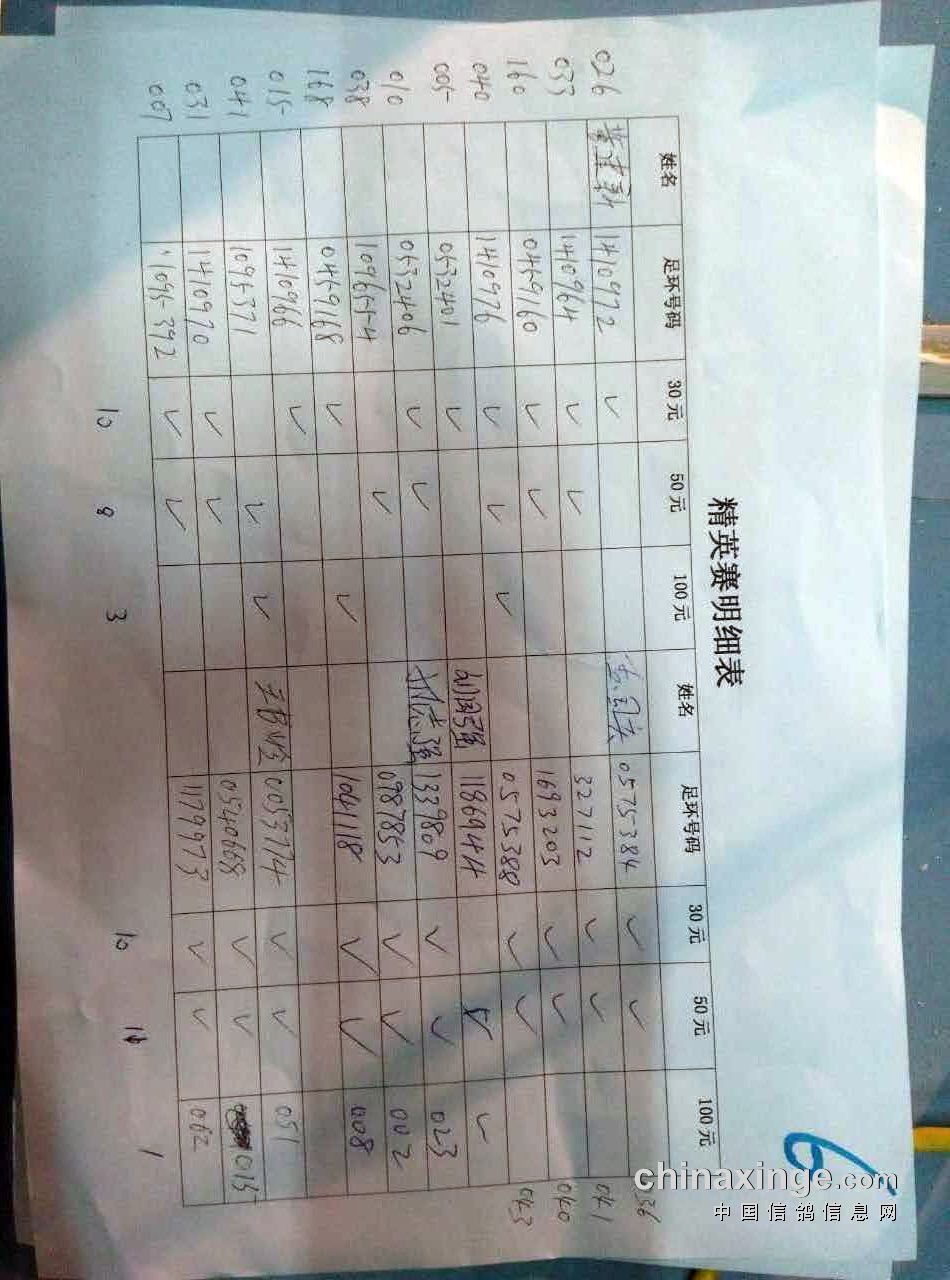 精英赛明细表
6
姓名 足环号码 30元 50元 100元 姓名 足环号码 30元 50元 100元
026 1410972 ✓ 0575384 ✓ ✓ 036
033 1410964 ✓ ✓ 327112 ✓ ✓ 041
160 0459160 ✓ ✓ 1693203 ✓ ✓ 040
040 1410976 ✓ ✓ ✓ 0575388 ✓ ✓ 043
005 0532401 ✓ 胡国强 1186944 ✓ ✓
010 0532406 ✓ ✓ 志强 1339809 ✓ ✓ 023
038 1096554 ✓ 0987853 ✓ ✓ 002
168 0459168 ✓ ✓ 1061118 ✓ ✓ 008
015 1410966 ✓
041 1095371 ✓ ✓ 0053774 ✓ ✓ 051
031 1410970 ✓ ✓ 0540668 ✓ ✓ 013
007 1095392 ✓ ✓ 1179973 ✓ ✓ 062
10 8 3 10 11 1
chinaxinge.com
中国信鸽信息网